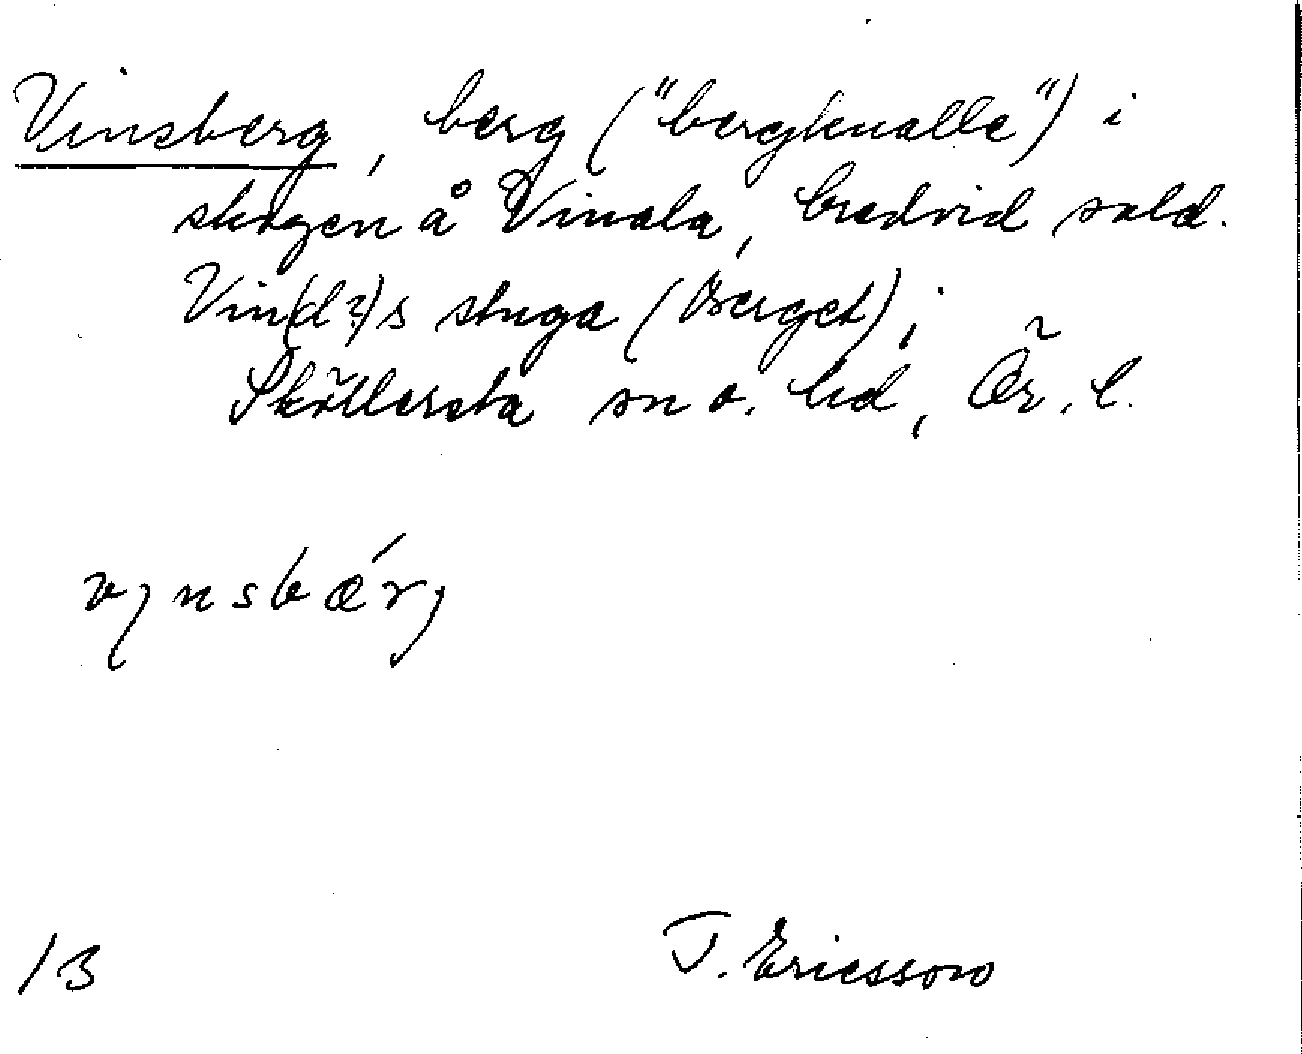 Vinsberg, berg ("bergknalle") i
skogen å Vinala, bredvid sold.
Vin(d?)s stuga (Berget);
Sköllersta sn o. hd, Ör. l.
vɩnsbǽrj
13 T. Ericsson